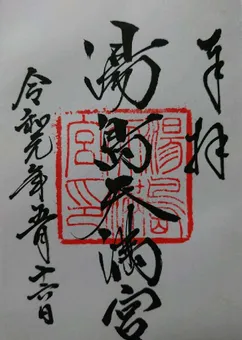 奉拝
湯島天満宮
令和元年五月十六日